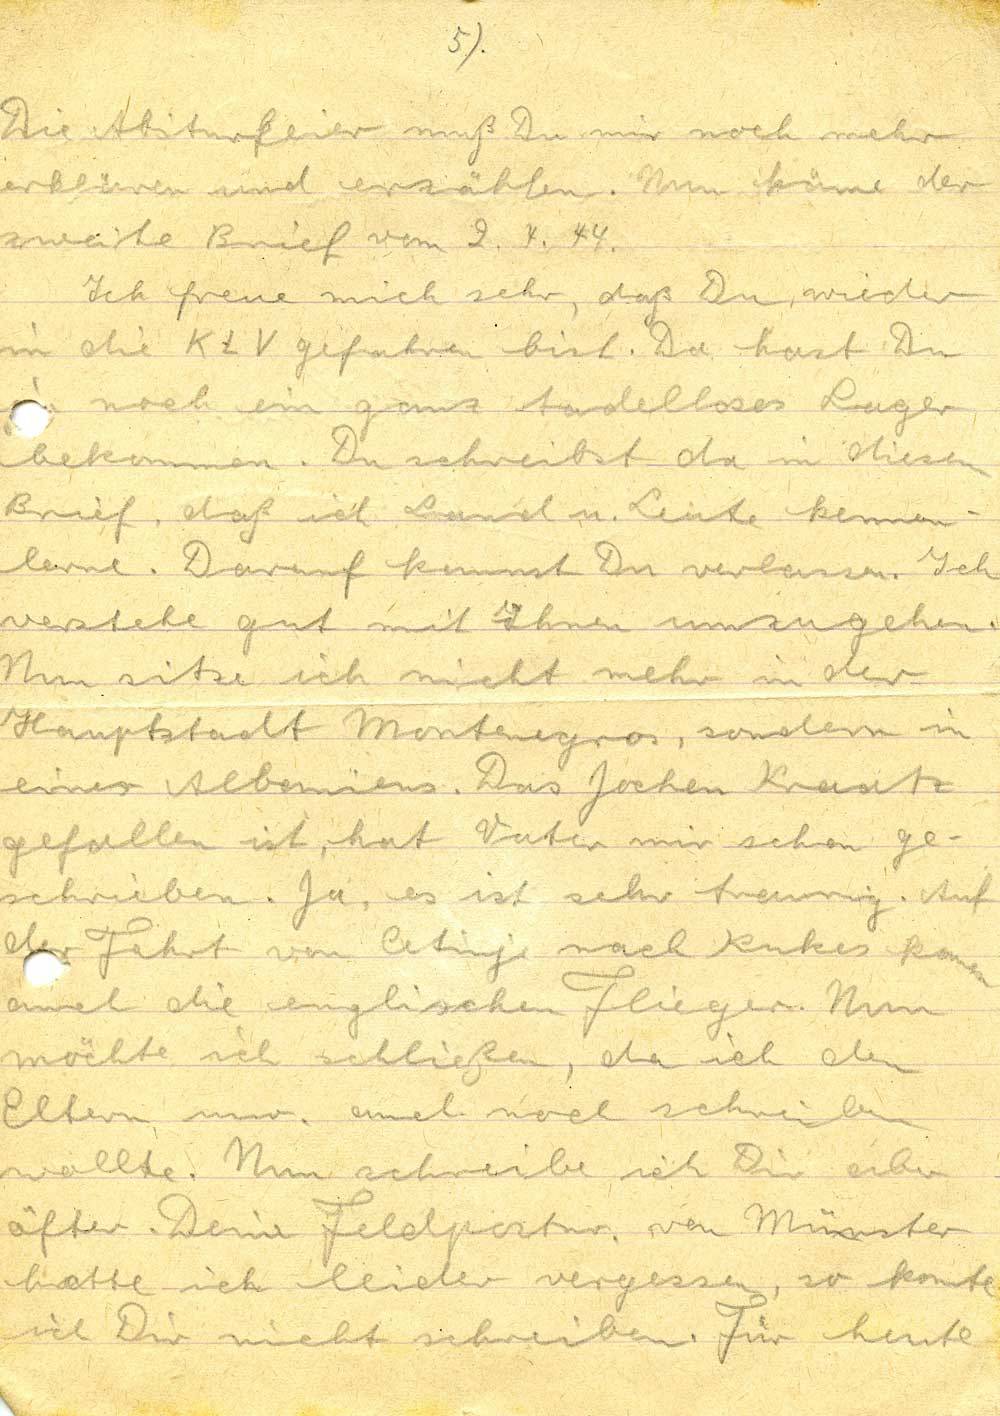 5).
Die Abiturfeier muß Du mir noch mehr
erklären und erzählen. Nun käme der
zweite Brief vom 2. 4. 44.
Ich freue mich sehr, daß Du wieder
in die KLV gefahren bist. Da hast Du
ja noch ein ganz tadelloses Lager
bekommen. Du schreibst da in diesen
Brief, daß ich Land u. Leute kennen-
lerne. Darauf kannst Du verlassen. Ich
verstehe gut mit Ihnen umzugehen.
Nun sitze ich nicht mehr in der
Hauptstadt Montenegros, sondern in
einer Albaniens. Das Jochen Kraatz
gefallen ist, hat Vater mir schon ge-
schrieben. Ja, es ist sehr traurig. Auf
der Fahrt von Cetinje nach Kukes kamen
auch die englischen Flieger. Nun
möchte ich schließen, da ich den
Eltern usw. auch noch schreiben
wollte. Nun schreibe ich Dir aber
öfter. Deine Feldpostnr. von Münster
hatte ich leider vergessen, so konte
ich Dir nicht schreiben. Für heute